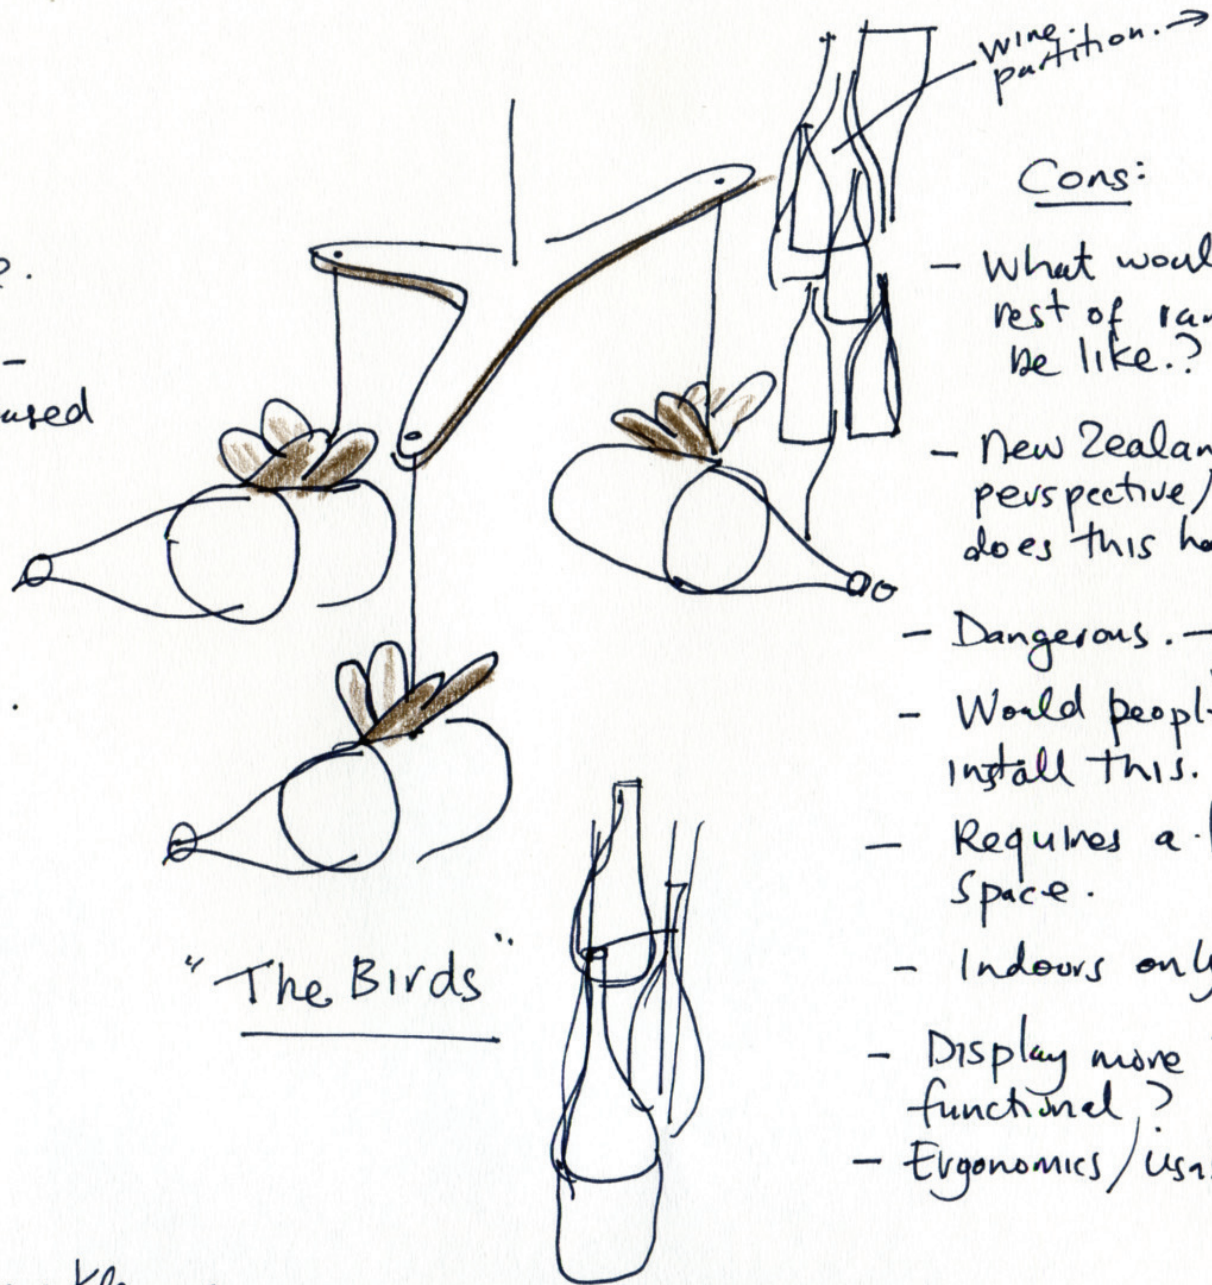 wine
partition. →
Cons:
- What woul
rest of ran
be like.?
- New Zealan
perspective/
does this ha
- Dangerous. -
- Would peopl
install this.
- Requires a
space.
- Indoors only
- Display more
functional?
- Ergonomics/usa
"The Birds"
used